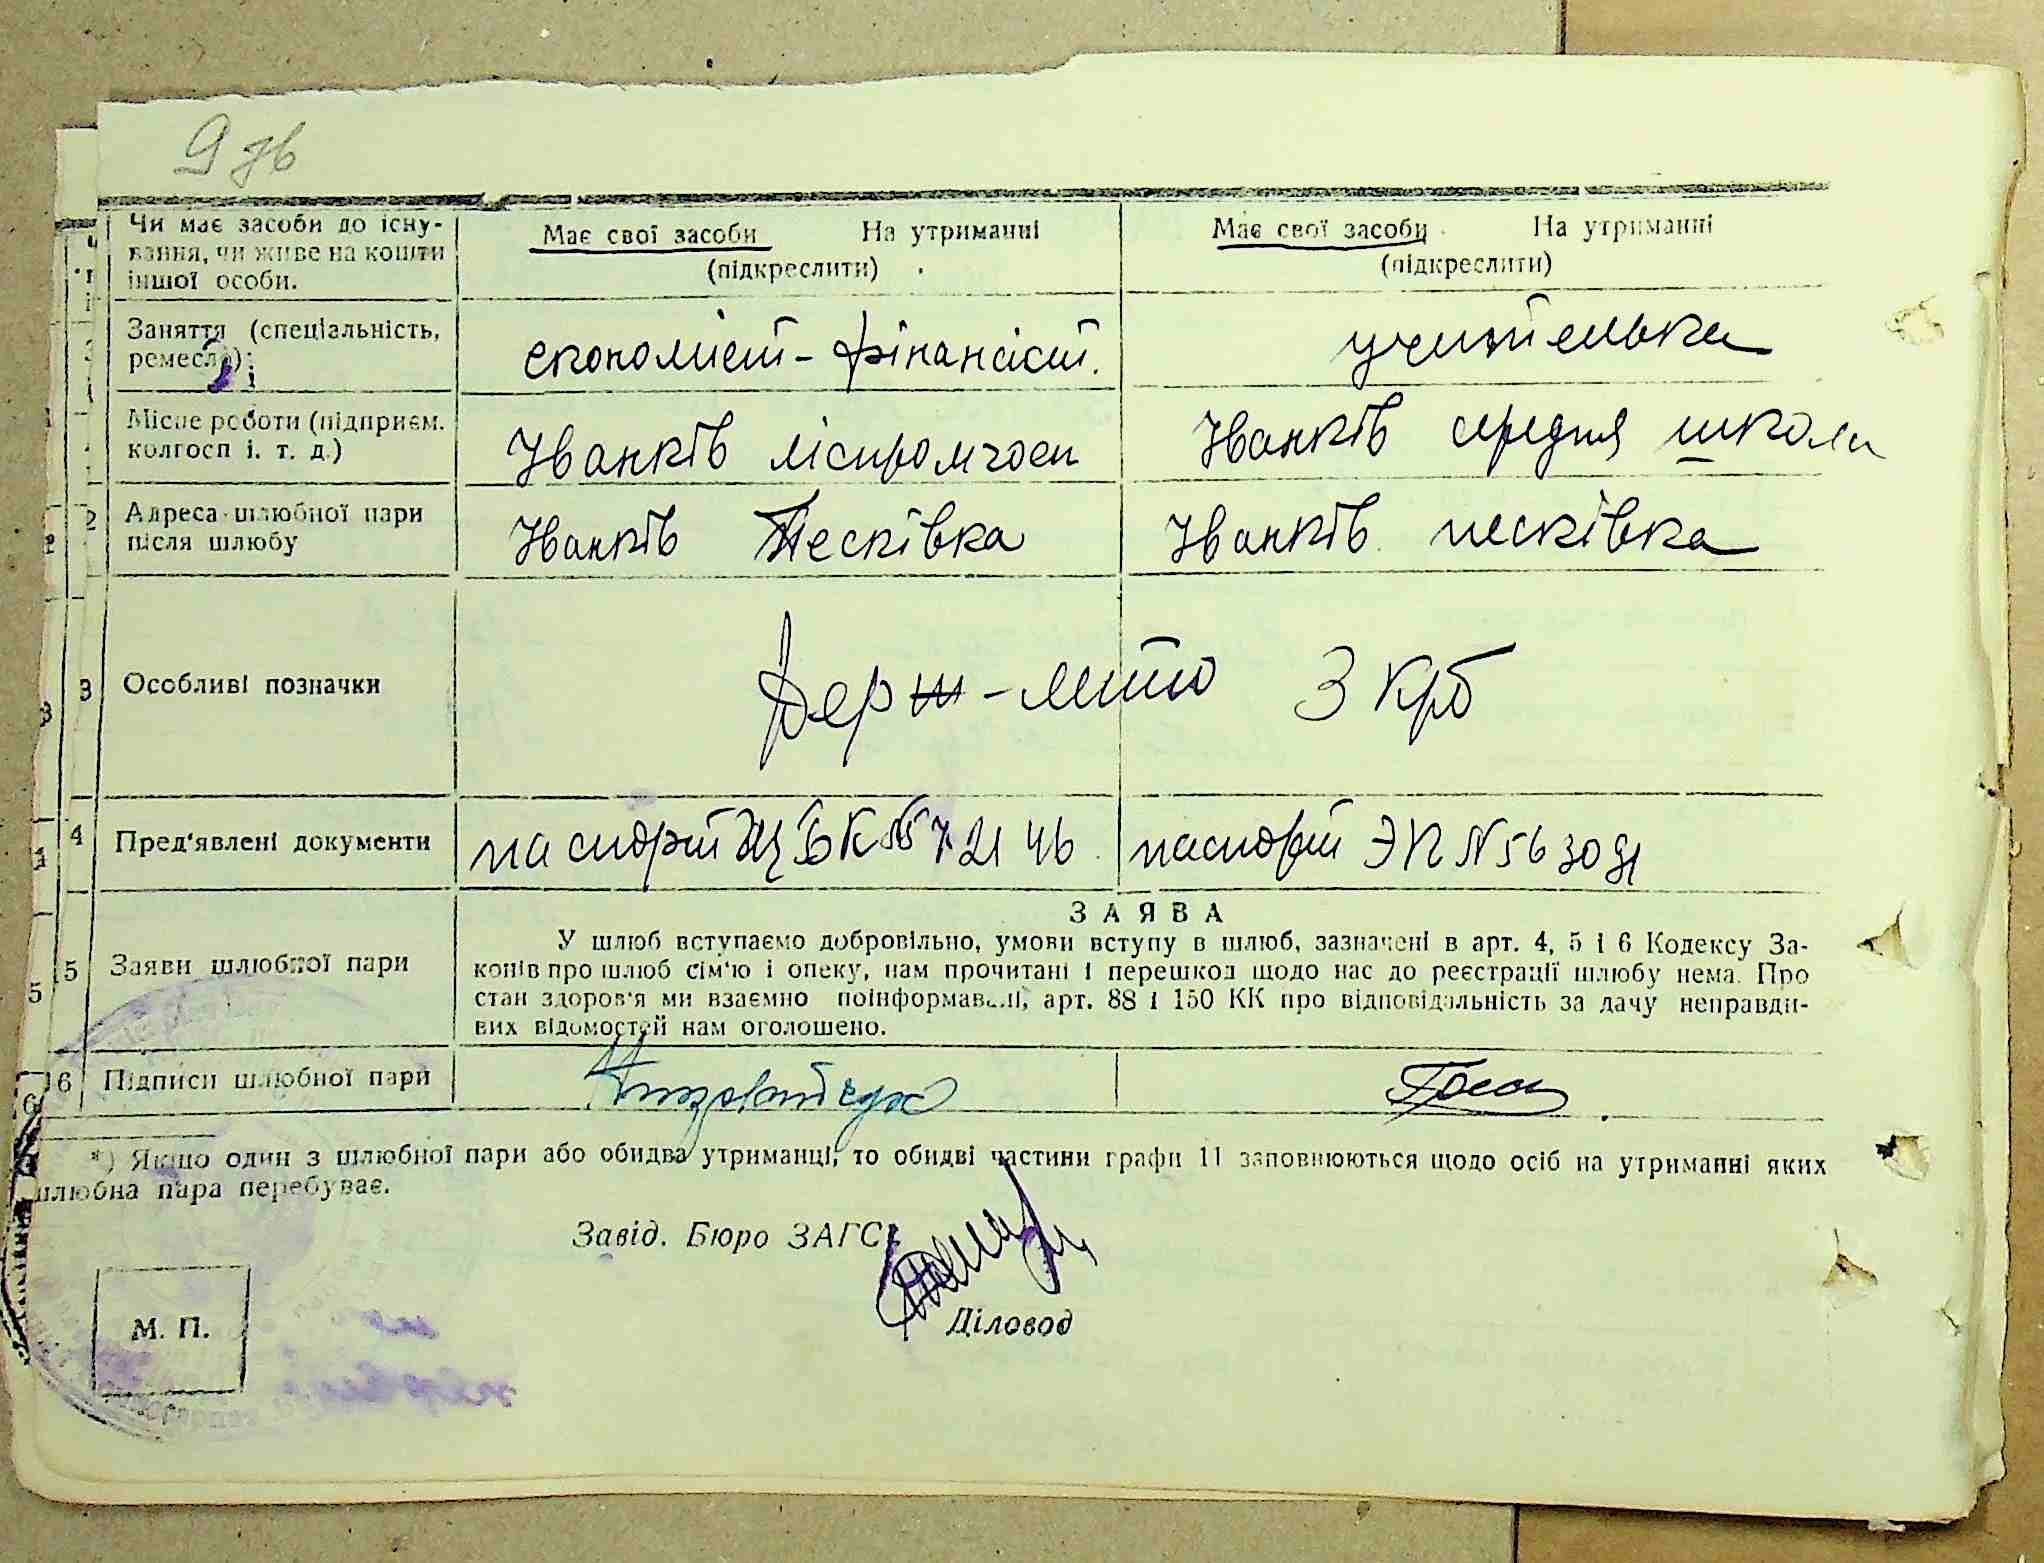 9 зв
Чи має засоби до існу-
вання, чи живе на кошти
іншої особи.
Має свої засоби На утриманні
(підкреслити)
Має свої засоби На утриманні
(підкреслити)
Заняття (спеціальність,
ремесло)
економіст-фінансіст.
учителька
Місце роботи (підприєм.
колгосп і. т. д.)
Іванків ліспромгосп
Іванків середня школа
Адреса шлюбної пари
після шлюбу
Іванків Пєсківка
Іванків песківка
3 Особливі позначки
Держ-мито 3 крб
4 Пред'явлені документи
паспорт
паспорт ЭП N 563091
5 Заяви шлюбної пари
ЗАЯВА
У шлюб вступаємо добровільно, умови вступу в шлюб, зазначені в арт. 4, 5 і 6 Кодексу За-
конів про шлюб сім'ю і опеку, нам прочитані і перешкод щодо нас до реєстрації шлюбу нема. Про
стан здоров'я ми взаємно поінформавані, арт. 88 і 150 КК про відповідальність за дачу неправди-
вих відомостей нам оголошено.
6 Підписи шлюбної пари
*) Якщо один з шлюбної пари або обидва утриманці, то обидві частини графи 11 заповнюються щодо осіб на утриманні яких
шлюбна пара перебуває.
Завід. Бюро ЗАГС
Діловод
М. П.